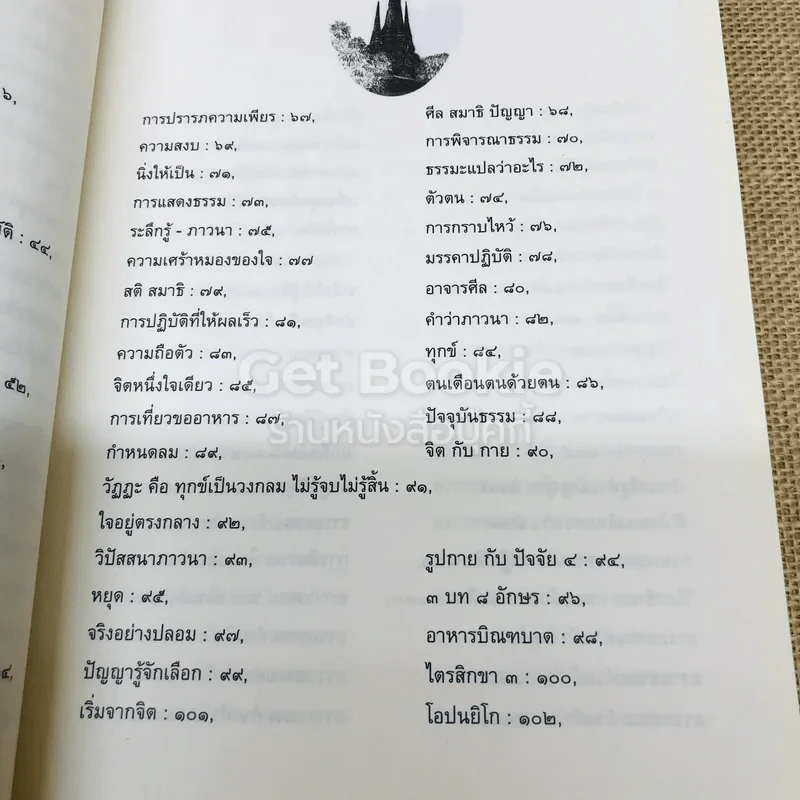 ๖,
การปรารภความเพียร : ๖๗,
ศีล สมาธิ ปัญญา : ๖๘,
ความสงบ : ๖๙,
การพิจารณาธรรม : ๗๐,
นิ่งให้เป็น : ๗๑,
ธรรมะแปลว่าอะไร : ๗๒,
การแสดงธรรม : ๗๓,
ตัวตน : ๗๔,
: ๔๔,
ระลึกรู้ - ภาวนา : ๗๕,
การกราบไหว้ : ๗๖,
ความเศร้าหมองของใจ : ๗๗
มรรคาปฏิบัติ : ๗๘,
สติ สมาธิ : ๗๙,
อาจารศีล : ๘๐,
การปฏิบัติที่ให้ผลเร็ว : ๘๑,
คำว่าภาวนา : ๘๒,
ความถือตัว : ๘๓,
ทุกข์ : ๘๔,
Get Bookie
๕๒,
จิตหนึ่งใจเดียว : ๘๕,
ตนเตือนตนด้วยตน : ๘๖,
การเที่ยวขออาหาร : ๘๗,
ปัจจุบันธรรม : ๘๘,
ร้านหนังสือบุคกี้
กำหนดลม : ๘๙,
จิต กับ กาย : ๙๐,
วัฏฏะ คือ ทุกข์เป็นวงกลม ไม่รู้จบไม่รู้สิ้น : ๙๑,
ใจอยู่ตรงกลาง : ๙๒,
วิปัสสนาภาวนา : ๙๓,
รูปกาย กับ ปัจจัย ๔ : ๙๔,
หยุด : ๙๕,
๓ บท ๘ อักษร : ๙๖,
จริงอย่างปลอม : ๙๗,
อาหารบิณฑบาต : ๙๘,
ปัญญารู้จักเลือก : ๙๙,
ไตรสิกขา ๓ : ๑๐๐,
เริ่มจากจิต : ๑๐๑,
โอปนยิโก : ๑๐๒,